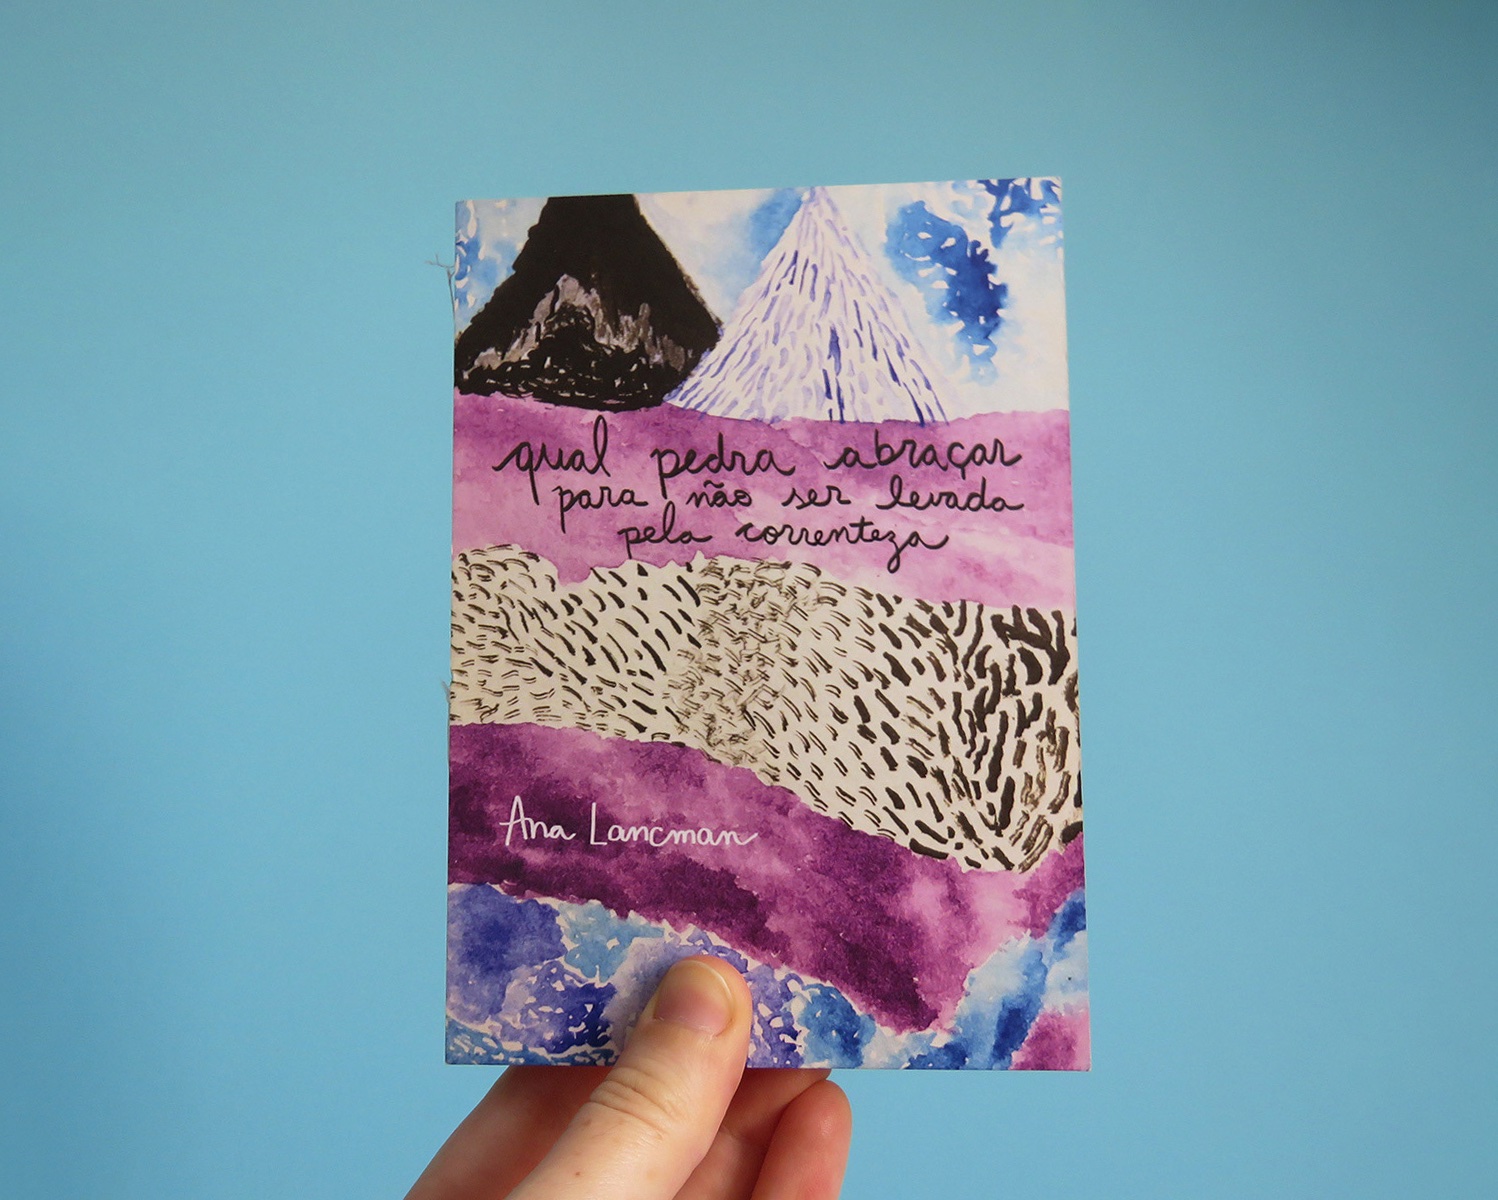 qual pedra abraçar
para não ser levada
pela correnteza
Ana Lancman